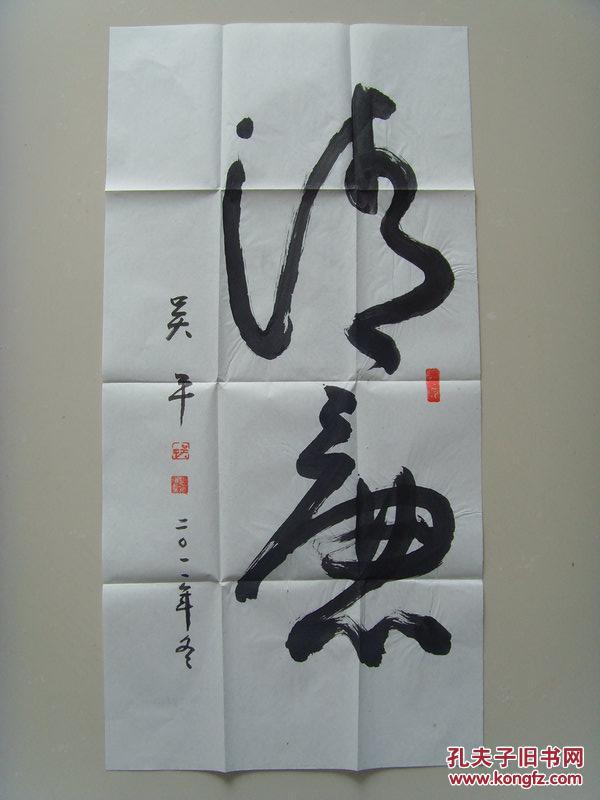 清廉
吴平
二〇一一年冬
孔夫子旧书网
www.kongfz.com